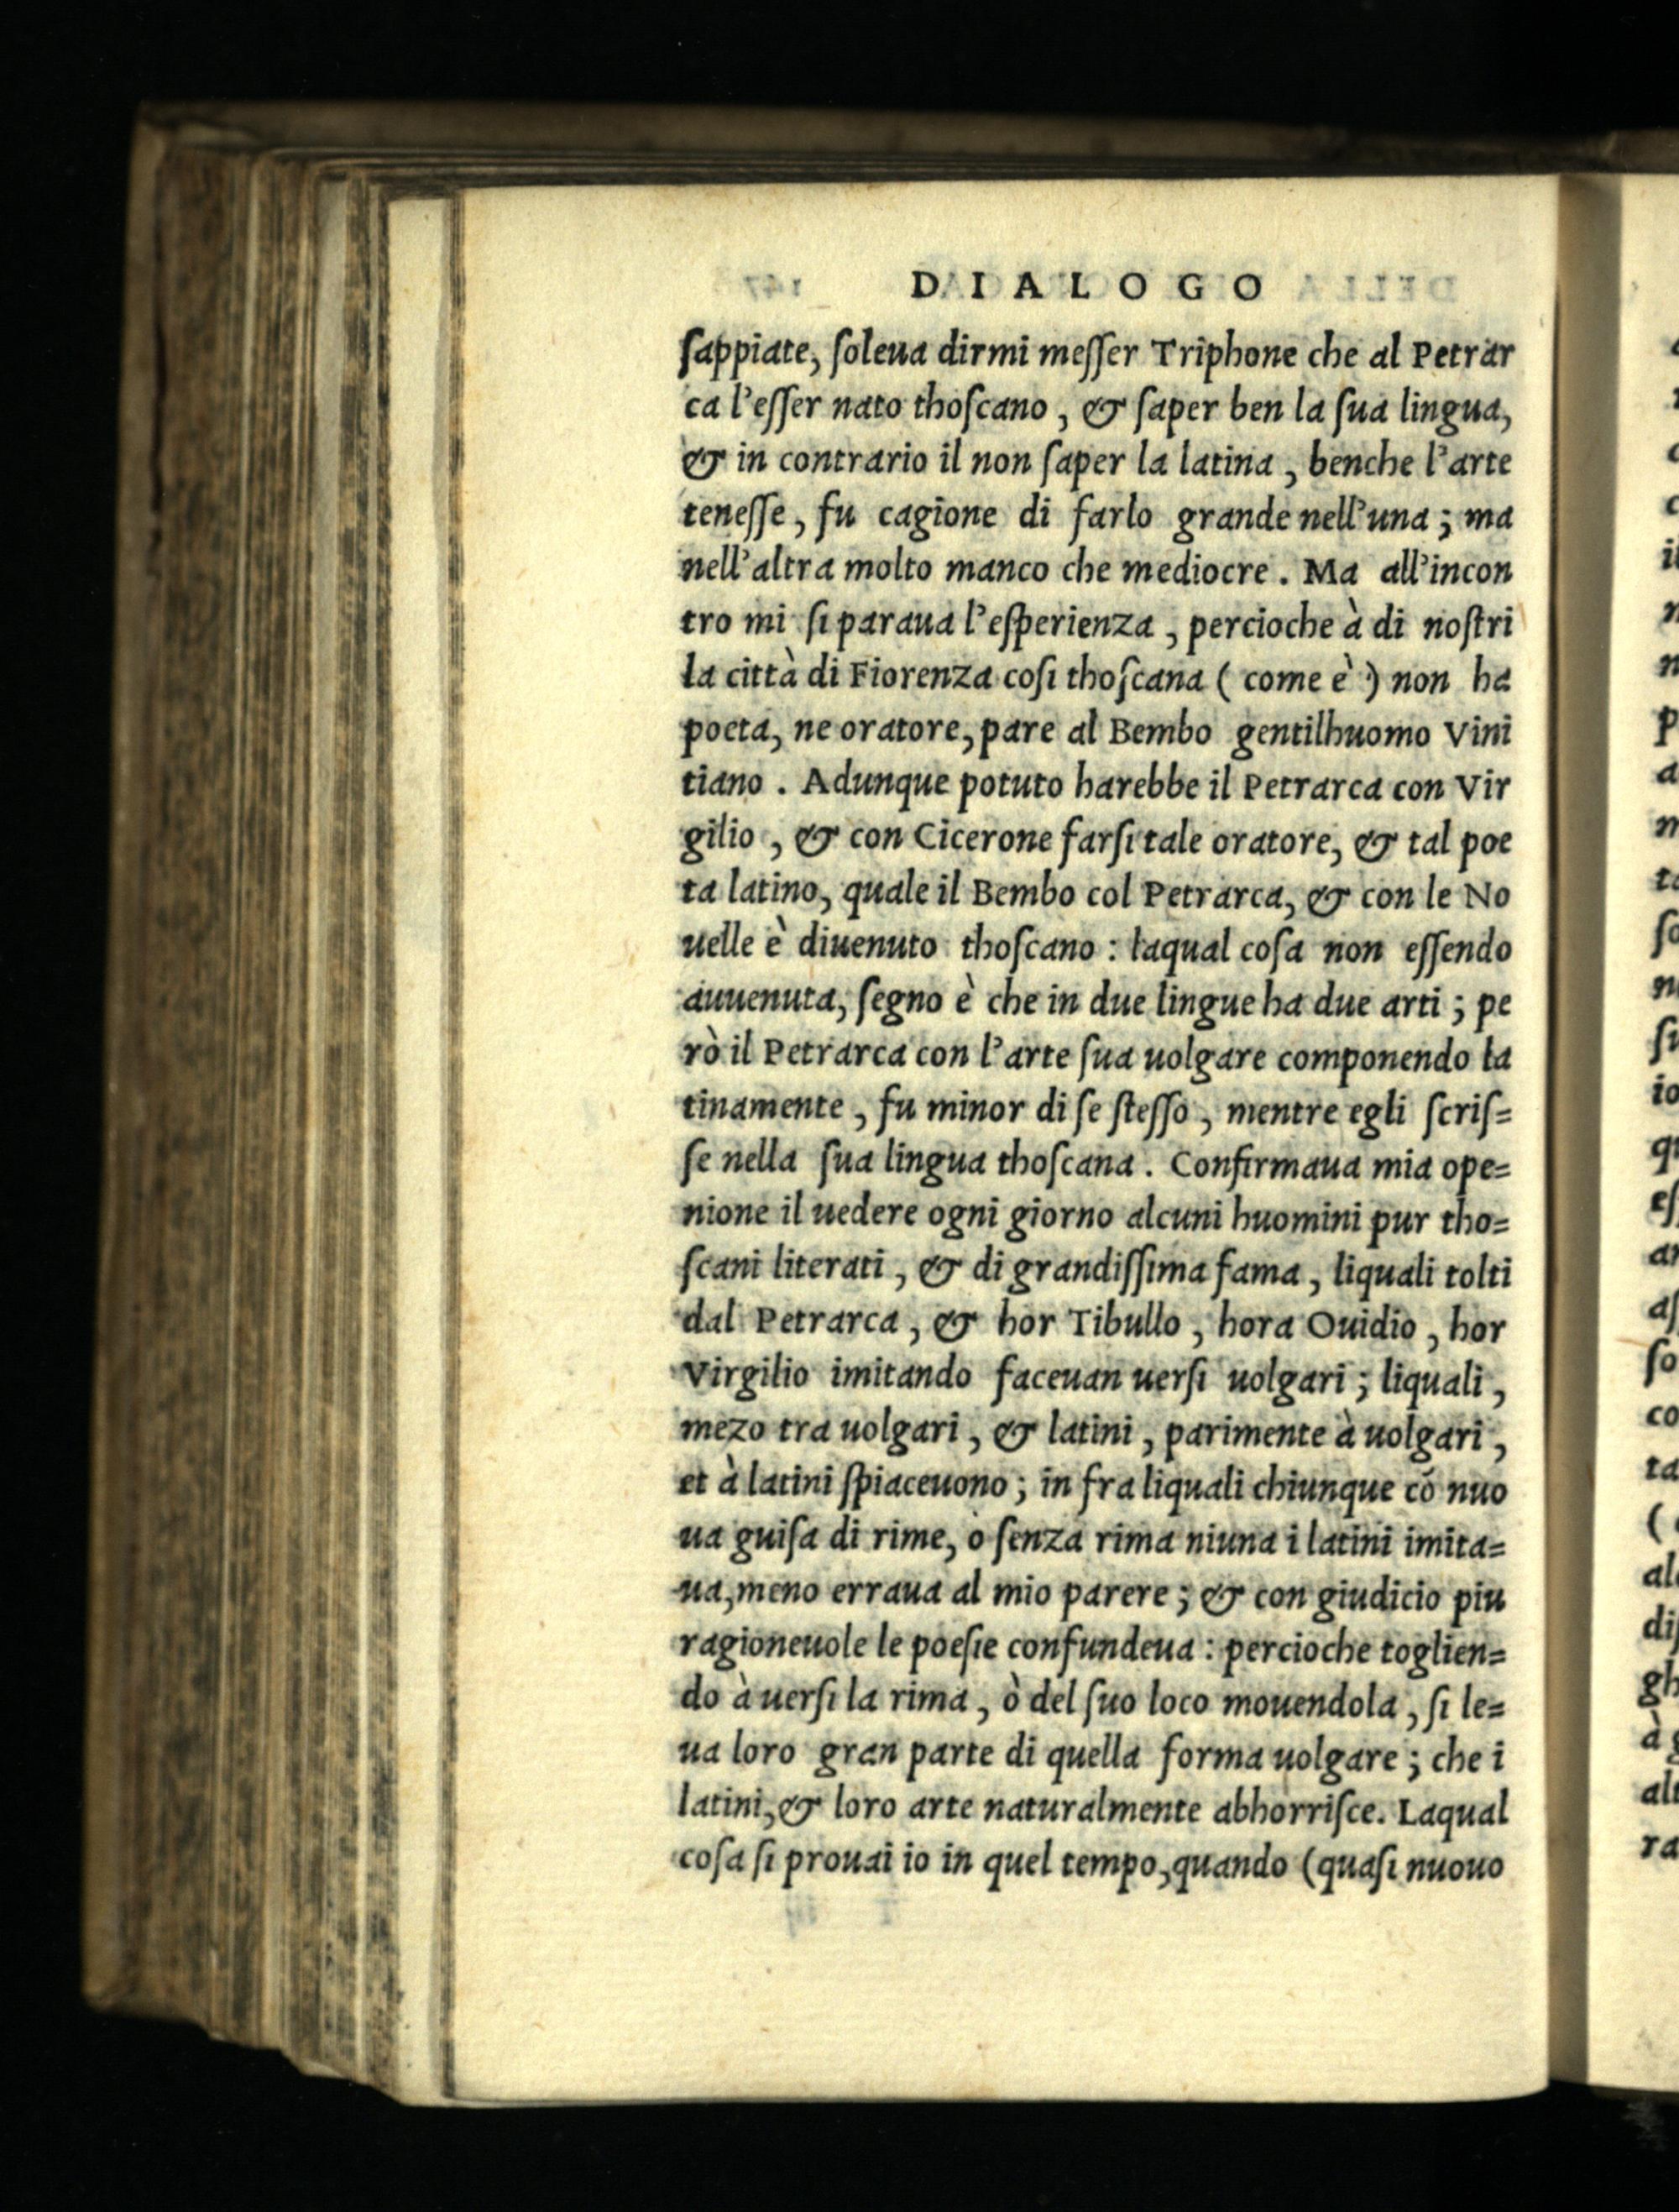 DIALOGO
ſappiate, ſoleua dirmi meſſer Triphone che al Petrar
ca l'eſſer nato thoſcano, & ſaper ben la ſua lingua,
& in contrario il non ſaper la latina, benche l'arte
teneſſe, fu cagione di farlo grande nell'una; ma
nell'altra molto manco che mediocre. Ma all'incon
tro mi ſi paraua l'eſperienza, percioche à di noſtri
la città di Fiorenza coſi thoſcana (come è) non ha
poeta, ne oratore, pare al Bembo gentilhuomo Vini
tiano. Adunque potuto harebbe il Petrarca con Vir
gilio, & con Cicerone farſi tale oratore, & tal poe
ta latino, quale il Bembo col Petrarca, & con le No
uelle è diuenuto thoſcano: laqual coſa non eſſendo
auuenuta, ſegno è che in due lingue ha due arti; pe
rò il Petrarca con l'arte ſua uolgare componendo la
tinamente, fu minor di ſe ſteſſo, mentre egli ſcriſ=
ſe nella ſua lingua thoſcana. Confirmaua mia ope=
nione il uedere ogni giorno alcuni huomini pur tho=
ſcani literati, & di grandiſſima fama, liquali tolti
dal Petrarca, & hor Tibullo, hora Ouidio, hor
Virgilio imitando faceuan uerſi uolgari; liquali,
mezo tra uolgari, & latini, parimente à uolgari,
et à latini ſpiaceuono; in fra liquali chiunque cõ nuo
ua guiſa di rime, ò ſenza rima niuna i latini imita=
ua, meno erraua al mio parere; & con giudicio piu
ragioneuole le poeſie confundeua: percioche toglien=
do à uerſi la rima, ò del ſuo loco mouendola, ſi le=
ua loro gran parte di quella forma uolgare; che i
latini, & loro arte naturalmente abhorriſce. Laqual
coſa ſi prouai io in quel tempo, quando (quaſi nuouo